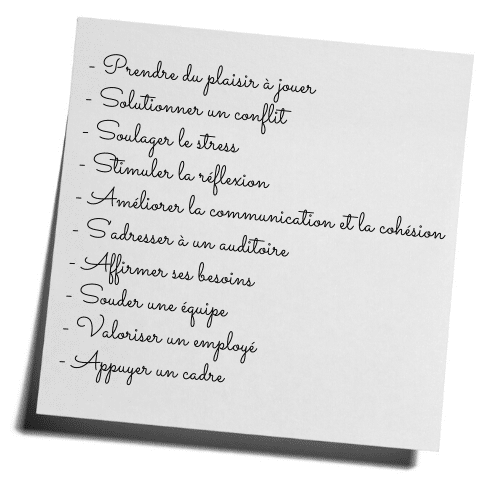 - Prendre du plaisir à jouer
- Solutionner un conflit
- Soulager le stress
- Stimuler la réflexion
- Améliorer la communication et la cohésion
- S'adresser à un auditoire
- Affirmer ses besoins
- Souder une équipe
- Valoriser un employé
- Appuyer un cadre